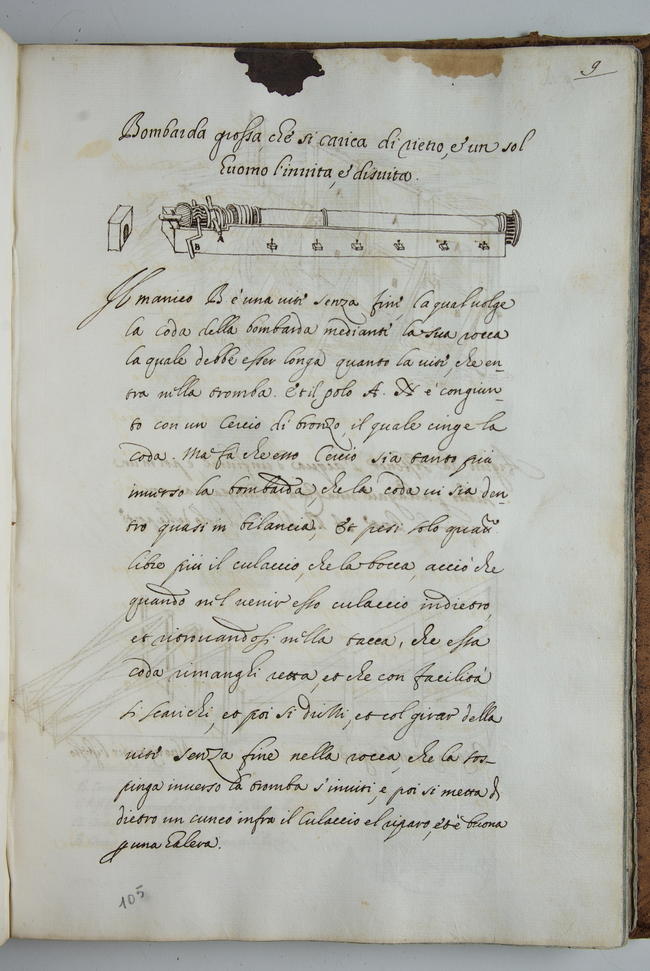 9
Bombarda grossa, che si carica di rietro, e un sol
huomo l'inuita, e disuita.
B
A
Il manico B è una uite senza fine, la qual uolge
la coda della bombarda mediante la sua rocca
la quale debbe esser longa quanto la uite, che en-
tra nella tromba. Et il polo A. è congiun-
to con un Cercio di bronzo, il quale cinge la
coda. Ma fa che esso Cercio sia tanto piu
inuerso la bombarda, che la coda ui sia den-
tro quasi in bilancia, et pesi solo quatt.
libre più il culaccio, che la bocca, acciò che
quando nel uenir esso culaccio indietro,
et ritrouandosi nella tacca, che essa
coda rimanghi retta, et che con facilità
si scarichi, et poi si drizzi, et col girar della
uite senza fine nella rocca, che la sos-
pinga inuerso la tromba s'inuiti, e poi si metta di
dietro un cuneo infra il Culaccio el riparo, et è buona
p una Galera.
105